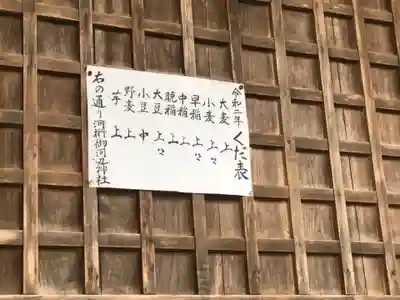 令和二年
くだ表
大麦 上
小麦 上々
早稲 上々
中稲 上
晩稲 上
大豆 上々
小豆 中
野麦 上
芋 上
右の通り
河桁御河辺神社